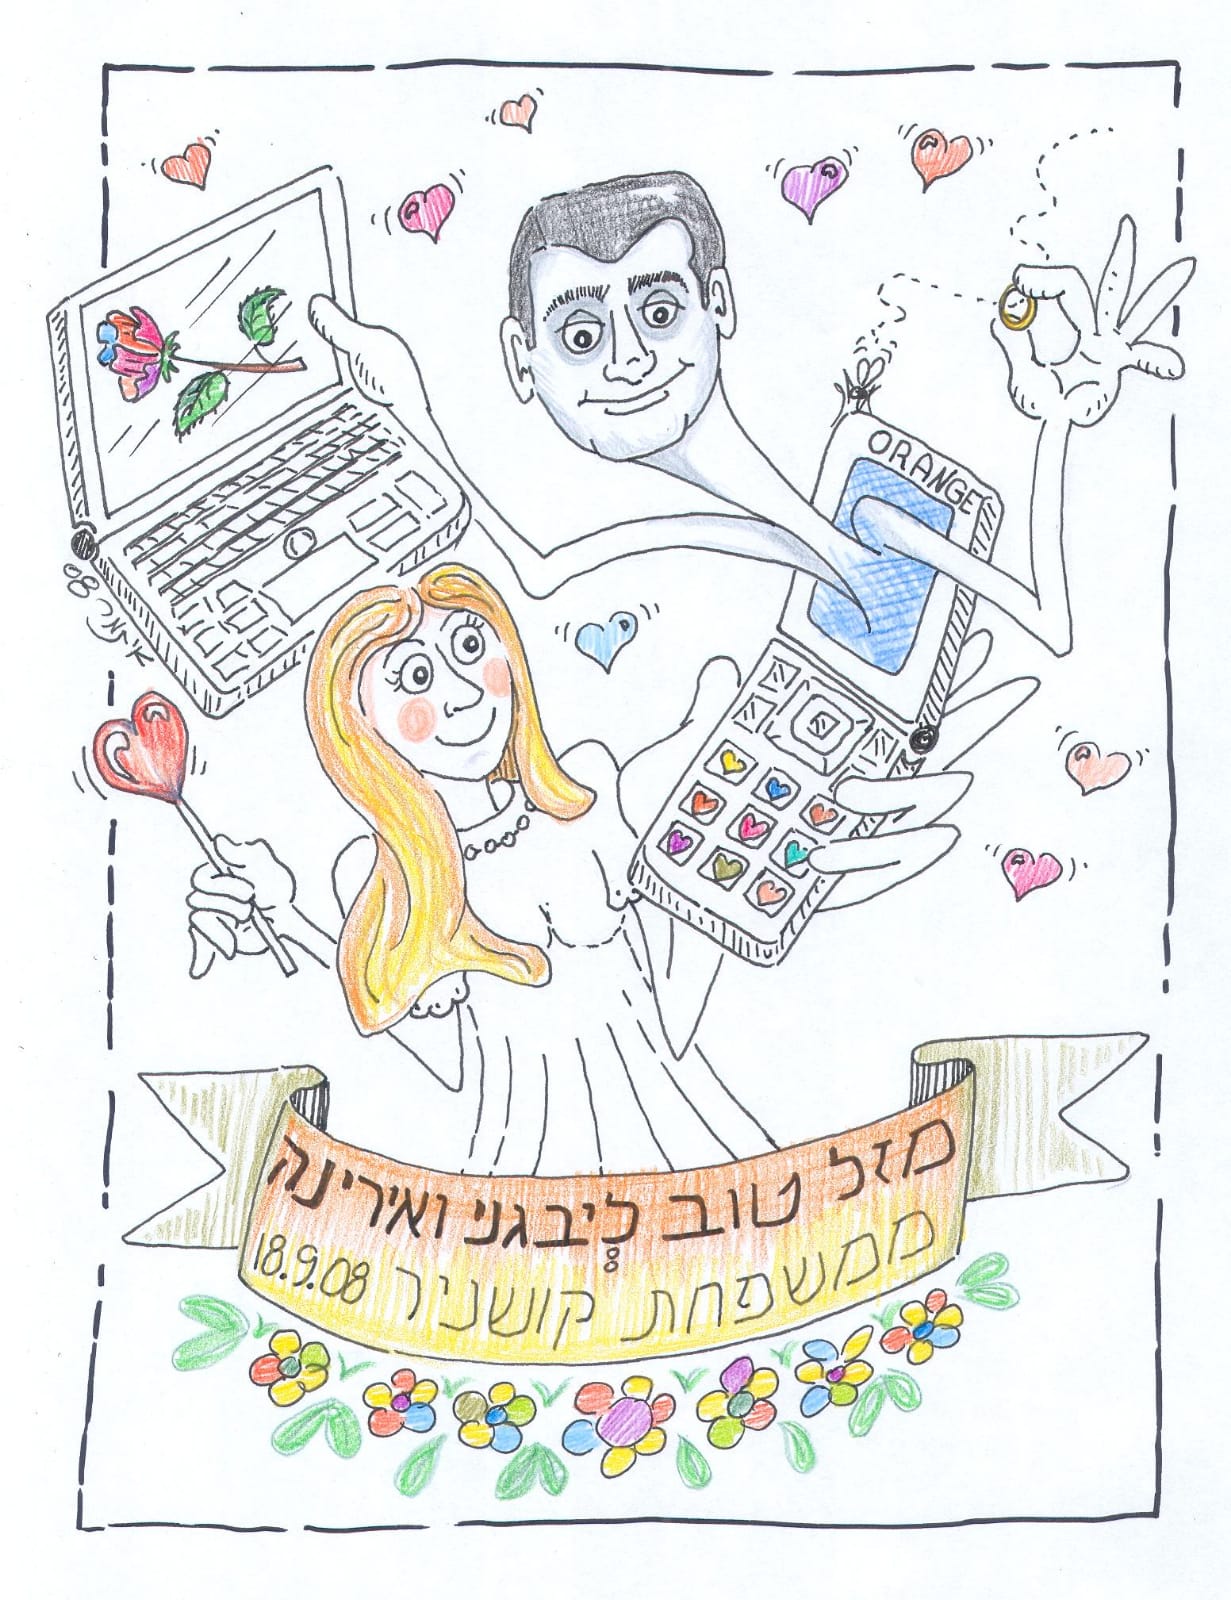 ORANGE
מזל טוב לֶיבגני ואירינה
ממשפחת קושניר 18.9.08